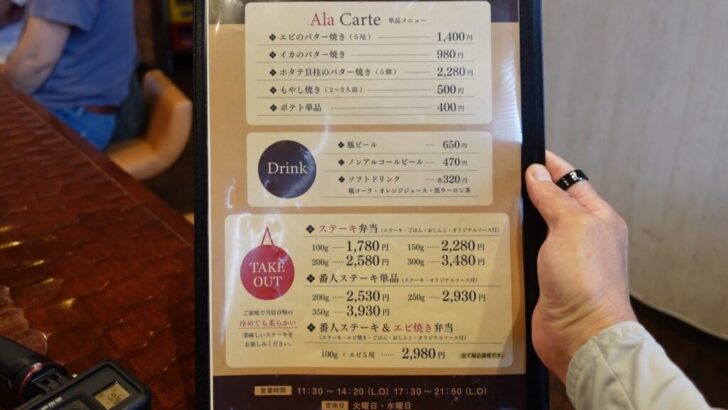 Ala Carte 単品メニュー
❖ エビのバター焼き（5尾） 1,400円
❖ イカのバター焼き 980円
❖ ホタテ貝柱のバター焼き（5個） 2,280円
❖ もやし焼き（2〜3人前） 500円
❖ ポテト単品 400円
Drink
❖ 瓶ビール 650円
❖ ノンアルコールビール 470円
❖ ソフトドリンク 各320円
瓶コーラ・オレンジジュース・黒ウーロン茶
TAKE
OUT
ご家庭で当店自慢の
冷めても柔らかい
美味しいステーキを
お楽しみください。
❖ ステーキ弁当（ステーキ・ごはん・おしんこ・オリジナルソース付）
100g ····· 1,780円 150g ····· 2,280円
200g ····· 2,580円 300g ····· 3,480円
❖ 番人ステーキ単品（ステーキ・オリジナルソース付）
200g ····· 2,530円 250g ····· 2,930円
350g ····· 3,930円
❖ 番人ステーキ & エビ焼き弁当
（ステーキ・エビ焼き・ごはん・おしんこ・オリジナルソース付）
100g × エビ5尾 ····· 2,980円
全て税込価格です。
営業時間 11:30 〜 14:20 (L.O) 17:30 〜 21:50 (L.O)
定休日 火曜日・水曜日